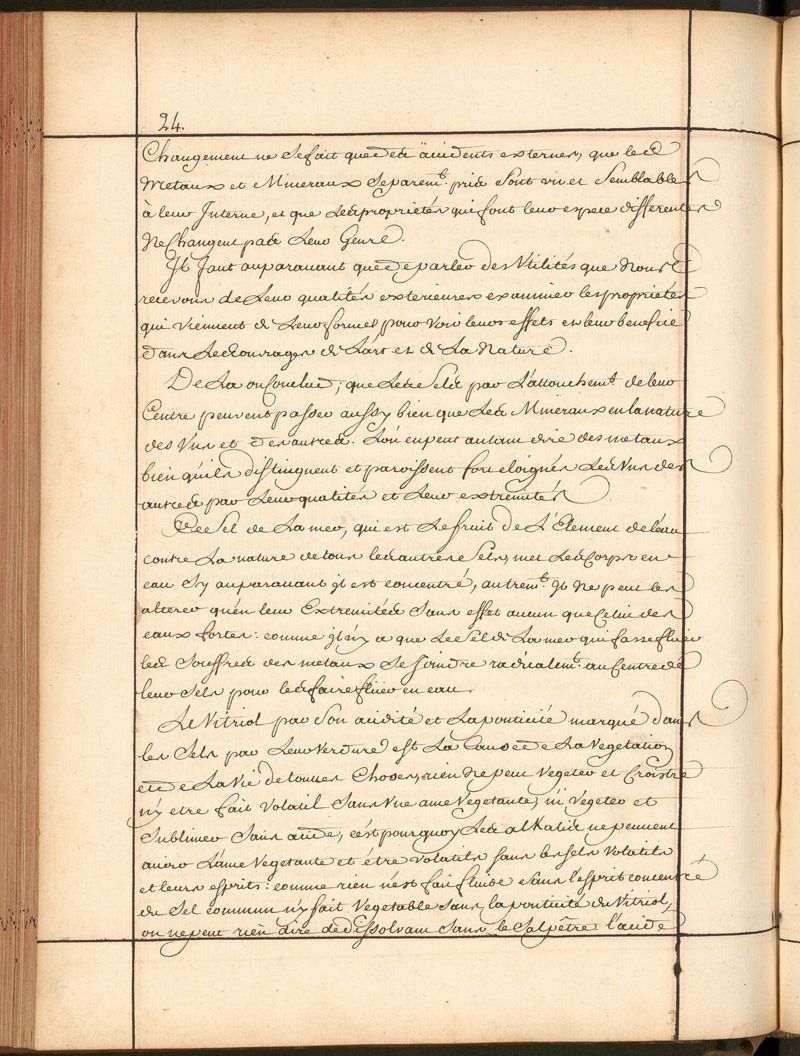 24.
Changement ne se fait que de accidents externes, que les
Metaux et Mineraux separem.t pris sont un et semblables
à leur Interne, et que les proprietés qui font leur espece differente
Ne changent pas leur Genre.
Il faut auparavant que de parler des Utilités que Nous
recevons de Leur qualités exterieures examiner les proprietés
qui viennent de Leur formes pour voir leurs effets et leur benefice
dans Les Ouvrages de L'art et de La Nature.
De La on Conclud; que Les Sels par L'attouchem.t de leur
Centre peuvent passer aussy bien que Les Mineraux en la nature
des Uns et des autres. L'on en peut autant dire des metaux
bien qu'ils distinguent et paroissent fort eloignés Les Uns des
autres par Leur qualités et Leur extremités.
Ce Sel de La mer, qui est Le fruit de L'Element de l'eau
contre La nature de tous les autres Sels, met Les Corps en
eau s'y auparavant il est concentré, autrem.t Il Ne peut les
alterer qu'en leur Extremités Sans effet aucun que Celui des
eaux fortes: comme il n'y a que Le Sel de La mer qui fasse fluer
les Souffres des metaux Se Joindre radicalem.t au Centre de
leur Sels pour les faire fluer en eau.
Le Vitriol par Son acidité et La ponticité marqué dans
les Sels par Leur verdure est La Cause de La Vegetation
et de La Vie de toutes Choses, rien Ne peut Vegeter et Croistre
n'y etre fait Volatil Sans Une ame Vegetante, ni Vegeter et
Sublimer Sans acide, c'est pourquoy Les alKalis ne peuvent
avoir L'ame Vegetante et être Volatils sans les sels Volatils
et leurs esprits: comme rien n'est fait fluide sans l'esprit concentré
du Sel commun n'y fait Vegetable sans la ponticité du Vitriol,
on ne peut rien dire de dissolvant Sans le Salpêtre l'acide